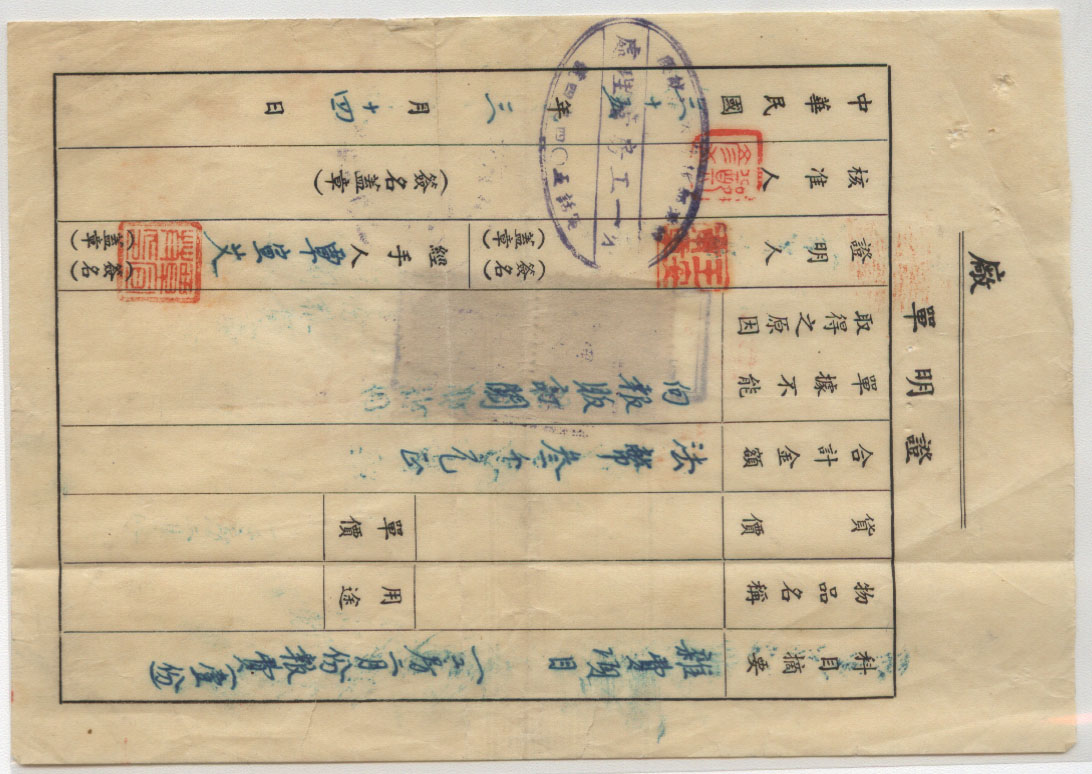 廠
證明單
科目摘要
雜費項目
一工房二月份報費壹份
物品名稱
用途
貨價
單價
合計金額
法幣叁千元正
單據不能
取得之原因
向報販訂閱
證明人
(簽名)
(蓋章)
經手人
(簽名)
(蓋章)
核准人
(簽名蓋章)
中華民國三十四年三月十四日